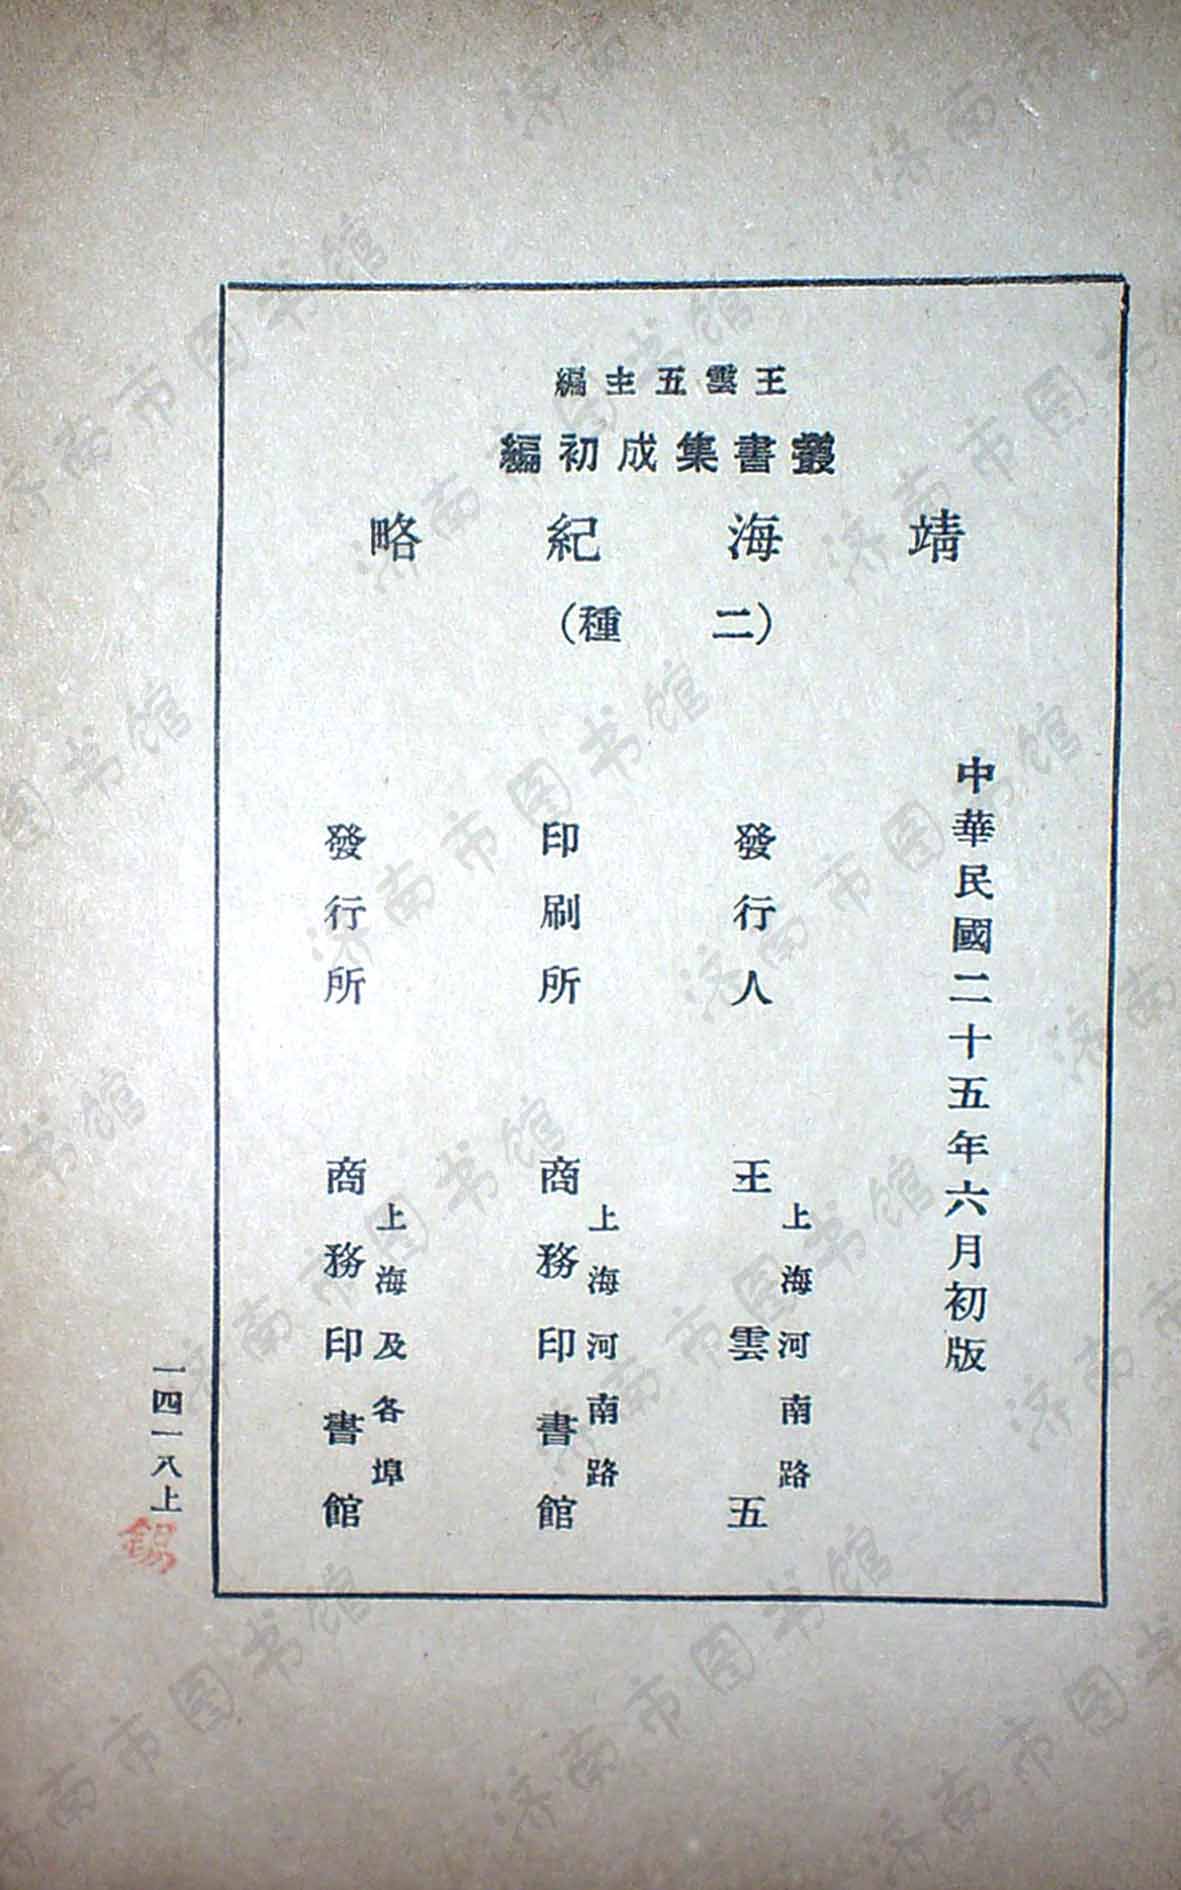 王雲五主編
叢書集成初編
靖海紀略
(二種)
中華民國二十五年六月初版
發行人
上海河南路
王雲五
印刷所
上海河南路
商務印書館
發行所
上海及各埠
商務印書館
一四一八上
錫
济南市图书馆